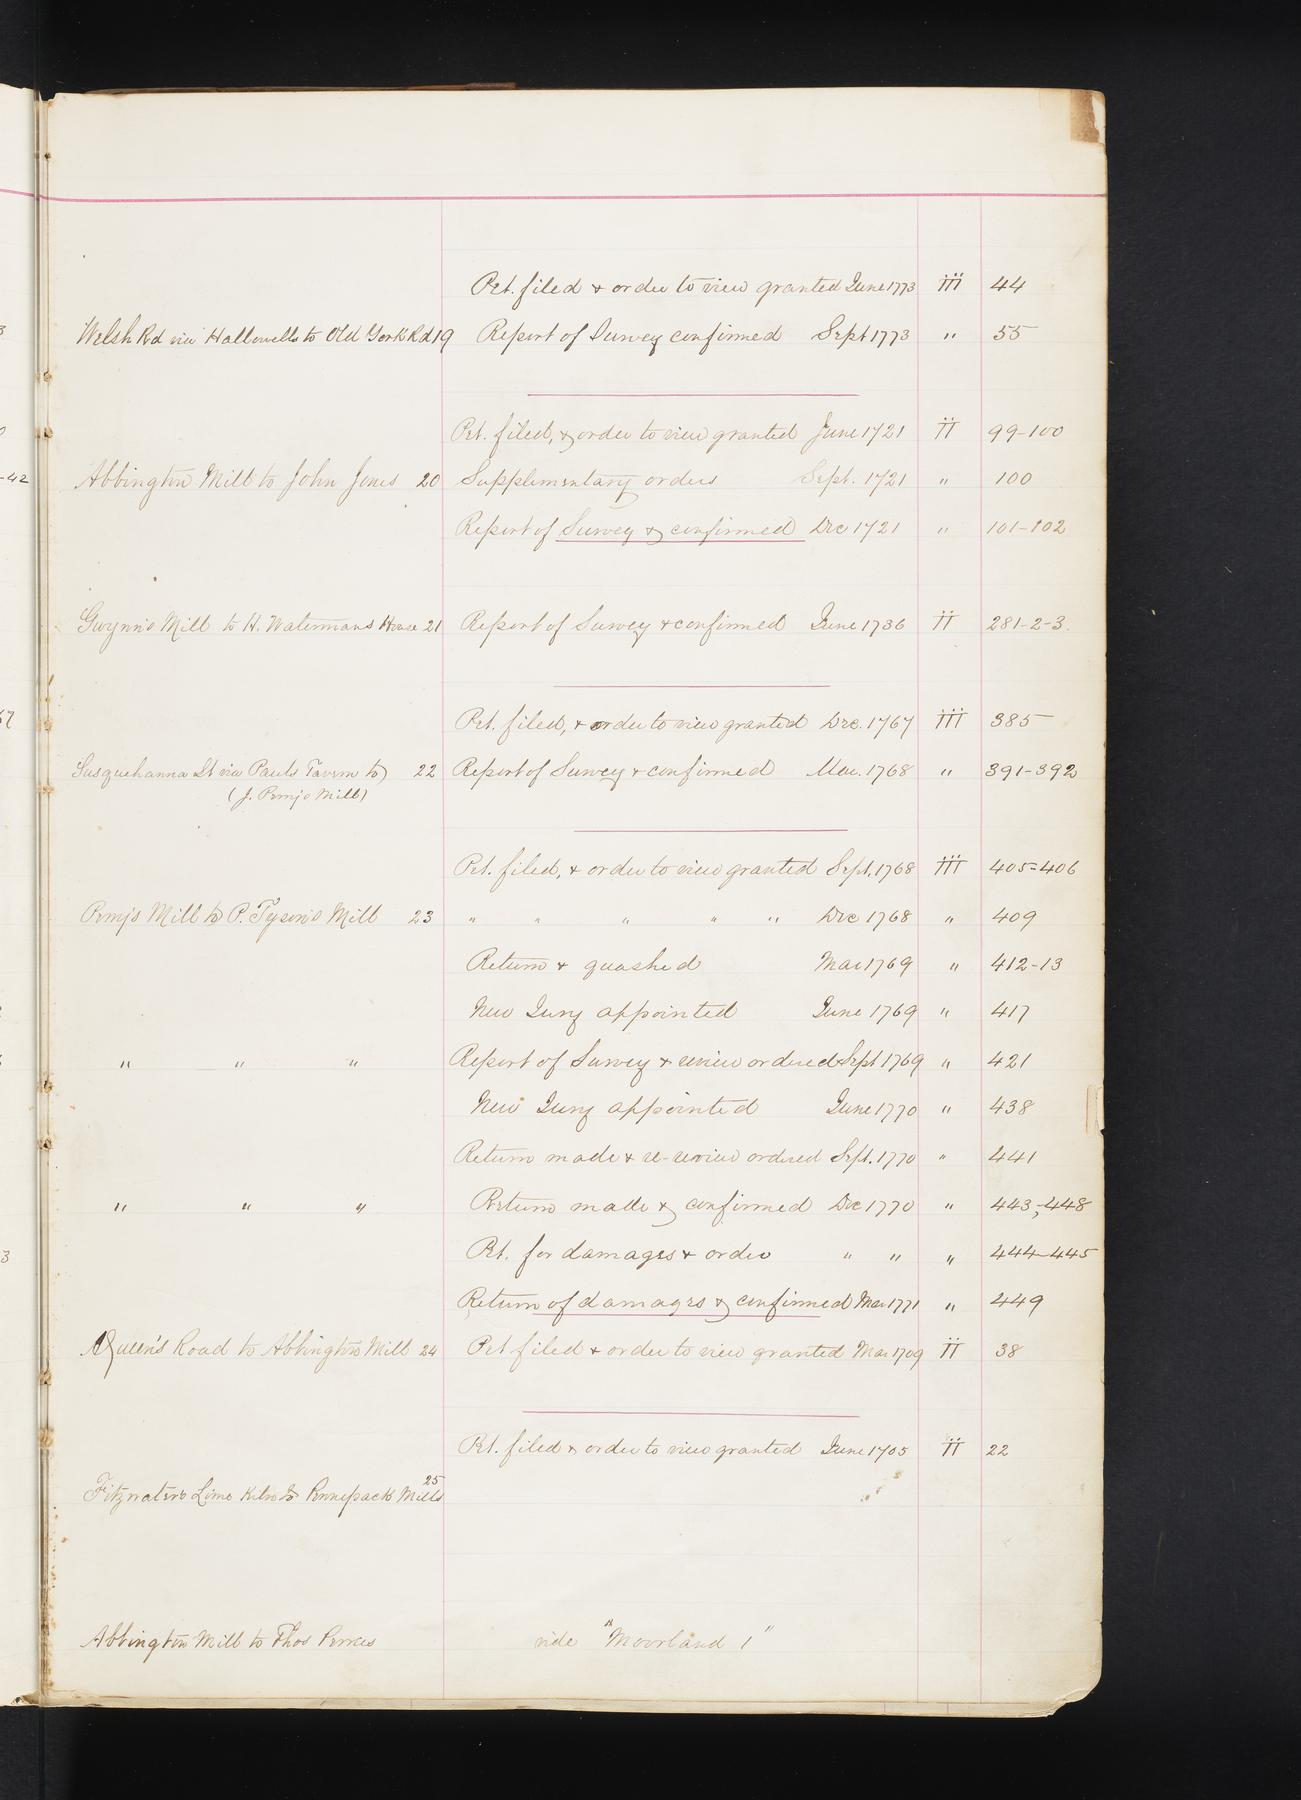 Pet. filed & order to view granted June 1773 iii 44
Welsh Rd via Hallowells to Old York Rd 19 Report of Survey confirmed Sept 1773 " 55
Pet. filed, & order to view granted June 1721 ii 99-100
-42
Abbington Mill to John Jones 20 Supplimentary orders Sept. 1721 " 100
Report of Survey & confirmed Dec 1721 " 101-102
Gwynn's Mill to H. Watermans House 21 Report of Survey & confirmed June 1736 ii 281-2-3.
Pet. filed, & order to view granted Dec. 1767 iii 385
Susquehanna St via Pauls Tavern to 22 Report of Survey & confirmed Mar. 1768 " 391-392
(J. Pemjs Mill)
Pet. filed, & order to view granted Sept. 1768 iii 405=406
Pemjs Mill to P. Tyson's Mill 23 " " " " " Dec 1768 " 409
Return & quashed Mar 1769 " 412-13
New Jury appointed June 1769 " 417
" " " Report of Survey & review ordered Sept 1769 " 421
New Jury appointed June 1770 " 438
Return made & re-review ordered Sept. 1770 " 441
" " " Return made & confirmed Dec 1770 " 443,-448
Pet. for damages & order " " " 444-445
Return of damages & confirmed Mar 1771 " 449
Queen's Road to Abbington Mill 24 Pet filed & order to view granted Mar 1709 ii 38
Pet. filed & order to view granted June 1705 ii 22
25
Fitzwater's Lime Kiln to Pennepack Mills
Abbington Mill to Thos Penroes vide "Moorland 1"